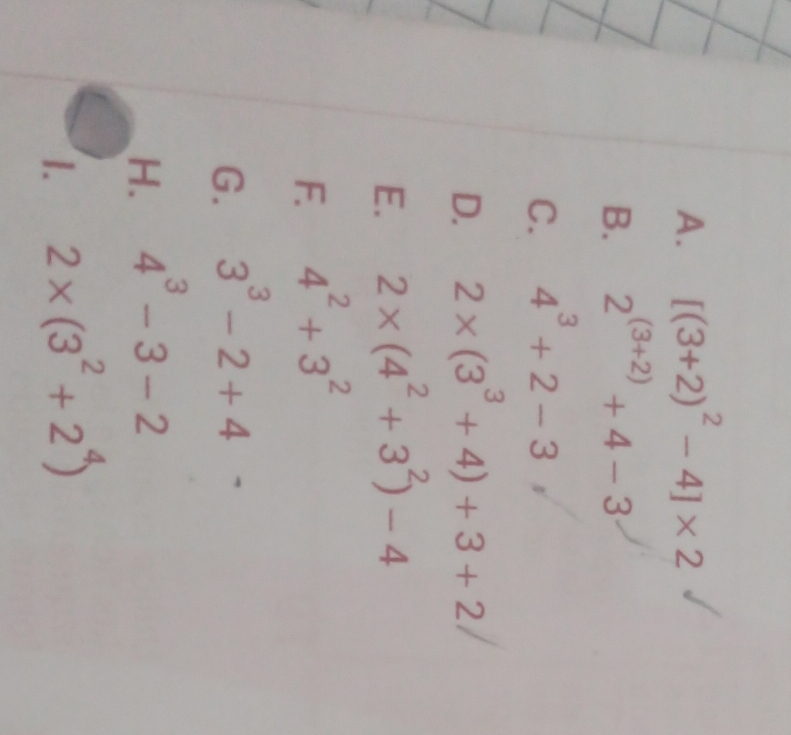 A. [(3+2)² − 4] × 2 ✓
B. 2⁽³⁺²⁾ + 4 − 3 ✓
C. 4³ + 2 − 3 ✓
D. 2 × (3³ + 4) + 3 + 2 /
E. 2 × (4² + 3²) − 4
F. 4² + 3²
G. 3³ − 2 + 4
H. 4³ − 3 − 2
I. 2 × (3² + 2⁴)